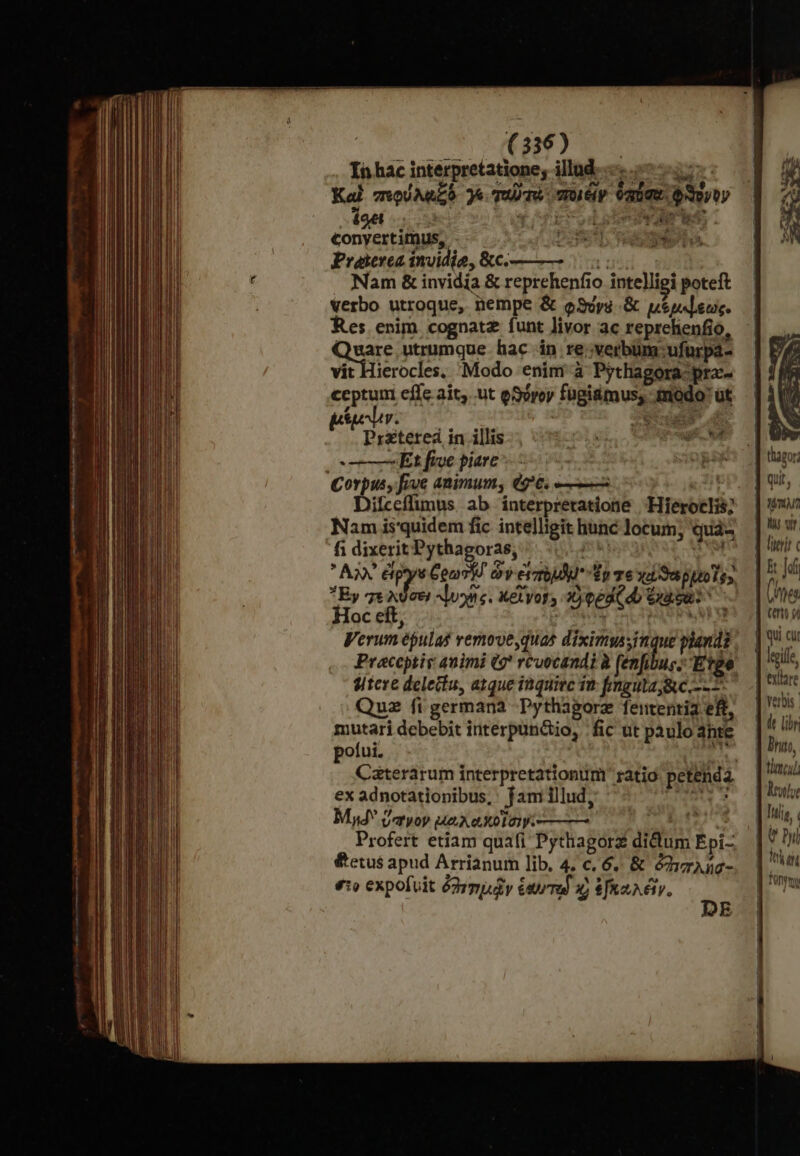 (336)
In hac interpretatione, illud
Καὶ πεφύλαξό γε ταῦτα ποιεῖν ὁπόσα φθόνον
ἴχει
convertimus,
Præterea invidiæ, &c.———
Nam & invidia & reprehenſio intelligi poteſt
verbo utroque, nempe & φθόνȣ & μέμψεως.
Res enim cognatæ ſunt livor ac reprehenſio,
Quare utrumque hac in re verbum uſurpa-
vit Hierocles. Modo enim à Pythagora præ-
ceptum eſſe ait, ut φθόνον fugiamus, modo ut
μέμψιν.
Præterea in illis
———Et ſive piare
Corpus, ſive animum, &c. ———
Diſceſſimus ab interpretatione Hieroclis;
Nam is quidem ſic intelligit hunc locum, qua-
ſi dixerit Pythagoras,
Ἀλλ' εἴργȣ βρωτῶν ὧν εἴπομεν ἔν τε καθαρμοῖς,
Ἔν τε λύσει ψυχῆς. κρίνων, καὶ φράζευ ἕκαστα:
Hoc eſt,
Verum epulas remove, quas diximus, inque piandi
Præceptis animi & revocandi à ſenſibus. Ergo
Utere delectu, atque inquire in ſingula, &c.---
Quæ ſi germana Pythagoræ ſententia eſt,
mutari debebit interpunctio, ſic ut paulo ante
poſui.
Cæterarum interpretationum ratio petenda
ex adnotationibus. Jam illud,
Μηδ' ὕπνον μαλακοῖσιν.———
Profert etiam quaſi Pythagoræ dictum Epi-
ctetus apud Arrianum lib. 4. c. 6. & ἐπιπλήσ-
σειν expoſuit ἐπιτιμᾷν ἑαυτῷ καὶ ἐγκαλεῖν.
DE